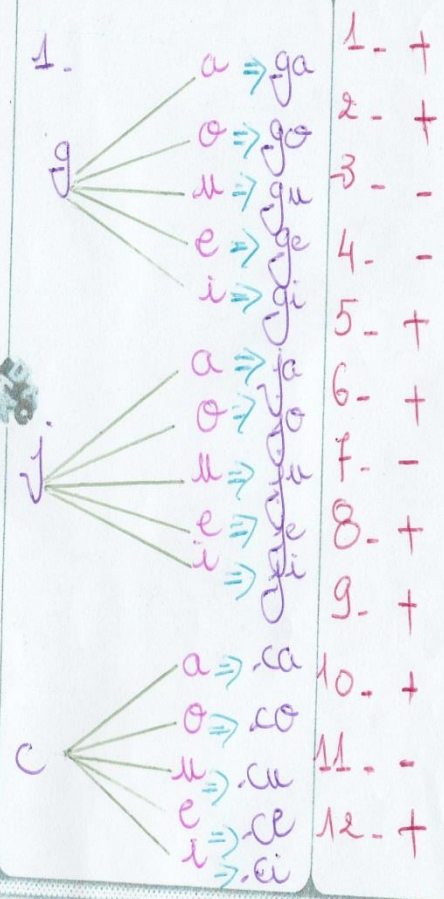 1-
g
a ⇒ ga
o ⇒ go
u ⇒ gu
e ⇒ ge
i ⇒ gi
j
a ⇒ ja
o ⇒ jo
u ⇒ ju
e ⇒ je
i ⇒ ji
c
a ⇒ ca
o ⇒ co
u ⇒ cu
e ⇒ ce
i ⇒ ci
1- +
2- +
3- -
4- -
5- +
6- +
7- -
8- +
9- +
10- +
11- -
12- +